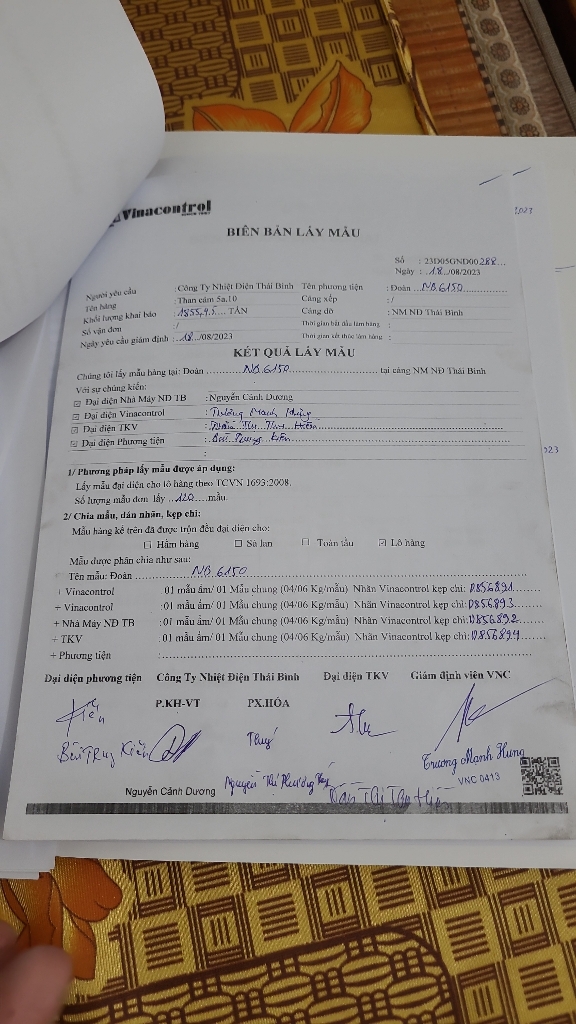 Vinacontrol
BIÊN BẢN LẤY MẪU
Số : 23D05GND00288...
Ngày : .18../08/2023
Người yêu cầu : Công Ty Nhiệt Điện Thái Bình Tên phương tiện : Đoàn ..NB.6150
Tên hàng : Than cám 5a.10 Cảng xếp : /
Khối lượng khai báo : 1855,45.... TẤN Cảng dỡ : NM NĐ Thái Bình
Số vận đơn : / Thời gian bắt đầu làm hàng :
Ngày yêu cầu giám định : ..18.../08/2023 Thời gian kết thúc làm hàng :
KẾT QUẢ LẤY MẪU
Chúng tôi lấy mẫu hàng tại: Đoàn ..............NB.6150.............................. tại cảng NM NĐ Thái Bình
Với sự chứng kiến:
☑ Đại diện Nhà Máy NĐ TB : Nguyễn Cảnh Dương
☑ Đại diện Vinacontrol : Trương Mạnh Hùng
☑ Đại diện TKV :
☑ Đại diện Phương tiện : Bùi Trung Kiên
:
1/ Phương pháp lấy mẫu được áp dụng:
Lấy mẫu đại diện cho lô hàng theo TCVN 1693:2008.
Số lượng mẫu đơn lấy ..120....mẫu.
2/ Chia mẫu, dán nhãn, kẹp chì:
Mẫu hàng kể trên đã được trộn đều đại diện cho:
☐ Hầm hàng ☐ Sà lan ☐ Toàn tàu ☑ Lô hàng
Mẫu được phân chia như sau:
Tên mẫu: Đoàn ...............NB.6150
+ Vinacontrol :01 mẫu ẩm/ 01 Mẫu chung (04/06 Kg/mẫu) Nhãn Vinacontrol kẹp chì: D856891
+ Vinacontrol :01 mẫu ẩm/ 01 Mẫu chung (04/06 Kg/mẫu) Nhãn Vinacontrol kẹp chì: D856893
+ Nhà Máy NĐ TB :01 mẫu ẩm/ 01 Mẫu chung (04/06 Kg/mẫu) Nhãn Vinacontrol kẹp chì: D856892
+ TKV :01 mẫu ẩm/ 01 Mẫu chung (04/06 Kg/mẫu) Nhãn Vinacontrol kẹp chì: D856894
+ Phương tiện :
Đại diện phương tiện Công Ty Nhiệt Điện Thái Bình Đại diện TKV Giám định viên VNC
P.KH-VT PX.HÓA
Kiên Thuý
Bùi Trung Kiên Trương Mạnh Hùng
VNC 0413
Nguyễn Cảnh Dương Nguyễn Thị Phương Thúy